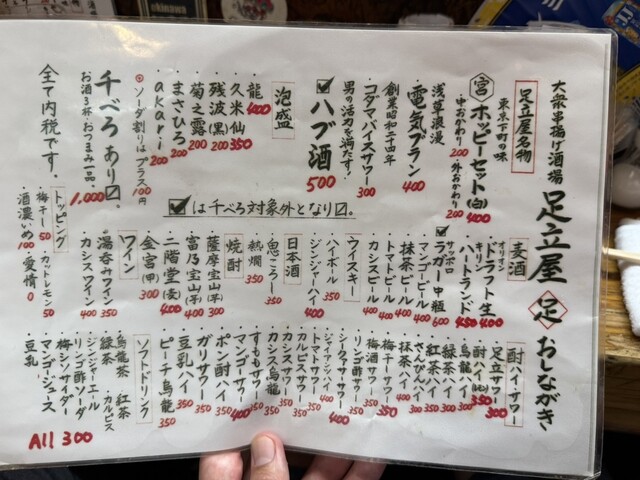 大衆串揚げ酒場 足立屋 足 おしながき
足立屋名物
東京下町の味
宮 ホッピーセット(白) 400
中おかわり 200 外おかわり 200
浅草浪漫
電気ブラン 400
創業昭和二十四年
・コダマバイスサワー 300
男の活力を満たす!
☑ハブ酒 500
泡盛
・龍 400
・久米仙 350
・残波(黒) 200
・菊之露 200
・まさひろ 200
・akari 200
⦿ソーダ割りはプラス100円
千べろ あり〼。
お酒3杯・おつまみ一品。 1,000
全て内税です。
☑は千べろ対象外となり〼。
麦酒
オリオン
・ドラフト生 400
キリン
・ハートランド 450
サッポロ
☑ラガー中瓶 600
・マンゴービール 400
・抹茶ビール 400
・トマトビール 400
・カシスビール 400
ウイスキー
・ハイボール 350
・ジンジャーハイ 400
日本酒
・怠ころーし 350
・熱燗 350
焼酎
・薩摩宝山(芋) 300
・富乃宝山(芋) 400
・二階堂(麦) 400
・金宮(甲) 300
ワイン
・湯呑みワイン 350
・カシスワイン 400
トッピング
・梅干し 50 ・カットレモン 50
・酒濃いめ 100 ・愛情 0
酎ハイ・サワー
・足立サワー 300
・酎ハイ 350
・烏龍ハイ 300
・緑茶ハイ 300
・紅茶ハイ 350
・さんぴんハイ 300
・抹茶ハイ 400
・梅干サワー 400
・リンゴ酢サワー 350
・梅酒サワー 350
・シークヮサーサワー 350
・ジャイアンハイ 400
・トマトサワー 400
・カルピスサワー 350
・カシスサワー 350
・カシス烏龍 350
・すももサワー 350
・マンゴーサワー 400
・ポン酢ハイ 350
・ガリサワー 350
・豆乳ハイ 350
・ピーチ烏龍 350
ソフトドリンク
・烏龍茶 ・紅茶
・緑茶 ・カルピス
・ジンジャーエール
・リンゴ酢ソーダ
・梅シソサイダー
・マンゴージュース
・豆乳
All 300